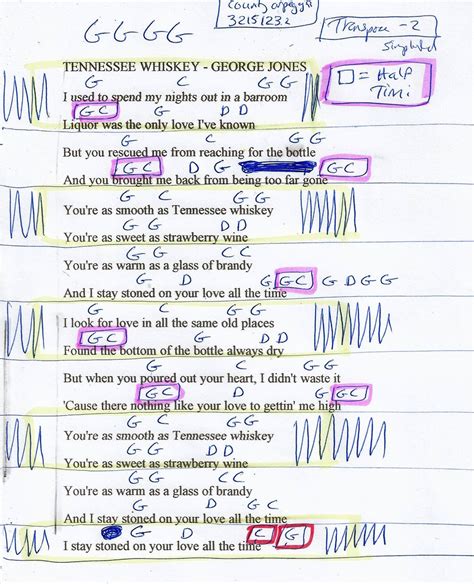 County arpeggio
32151232
G G G G
Transpose -2
Simplified
TENNESSEE WHISKEY - GEORGE JONES
= Half Time
G C G G
I used to spend my nights out in a barroom
G C G D D
Liquor was the only love I've known
G C G G
But you rescued me from reaching for the bottle
G C D G G C
And you brought me back from being too far gone
G C G G
You're as smooth as Tennessee whiskey
G G D D
You're as sweet as strawberry wine
G G C C
You're as warm as a glass of brandy
G D G C G D G G
And I stay stoned on your love all the time
G C G G
I look for love in all the same old places
G C G D D
Found the bottom of the bottle always dry
G C G G
But when you poured out your heart, I didn't waste it
G C D G G C
'Cause there nothing like your love to gettin' me high
G C G G
You're as smooth as Tennessee whiskey
G G D D
You're as sweet as strawberry wine
G G C C
You're as warm as a glass of brandy
G D G C
And I stay stoned on your love all the time
G D C G
I stay stoned on your love all the time